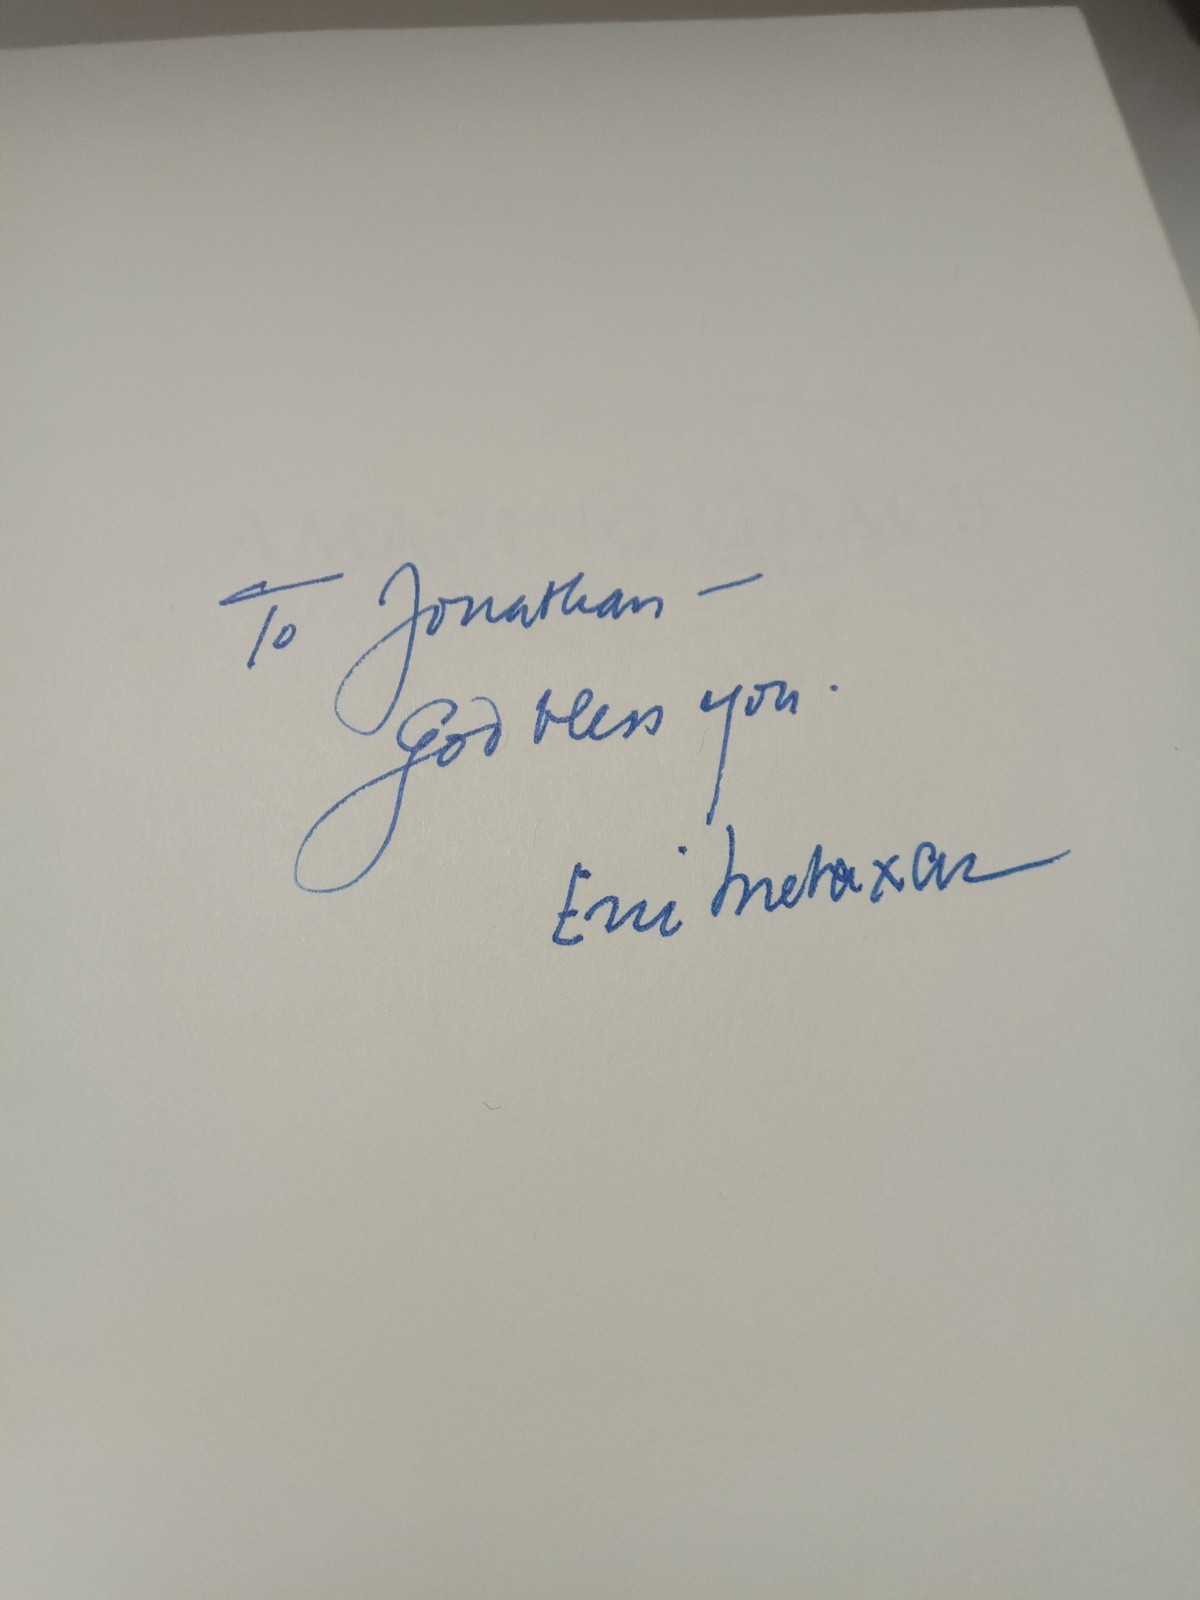 To Jonathan –
God bless you.
Eric Metaxas